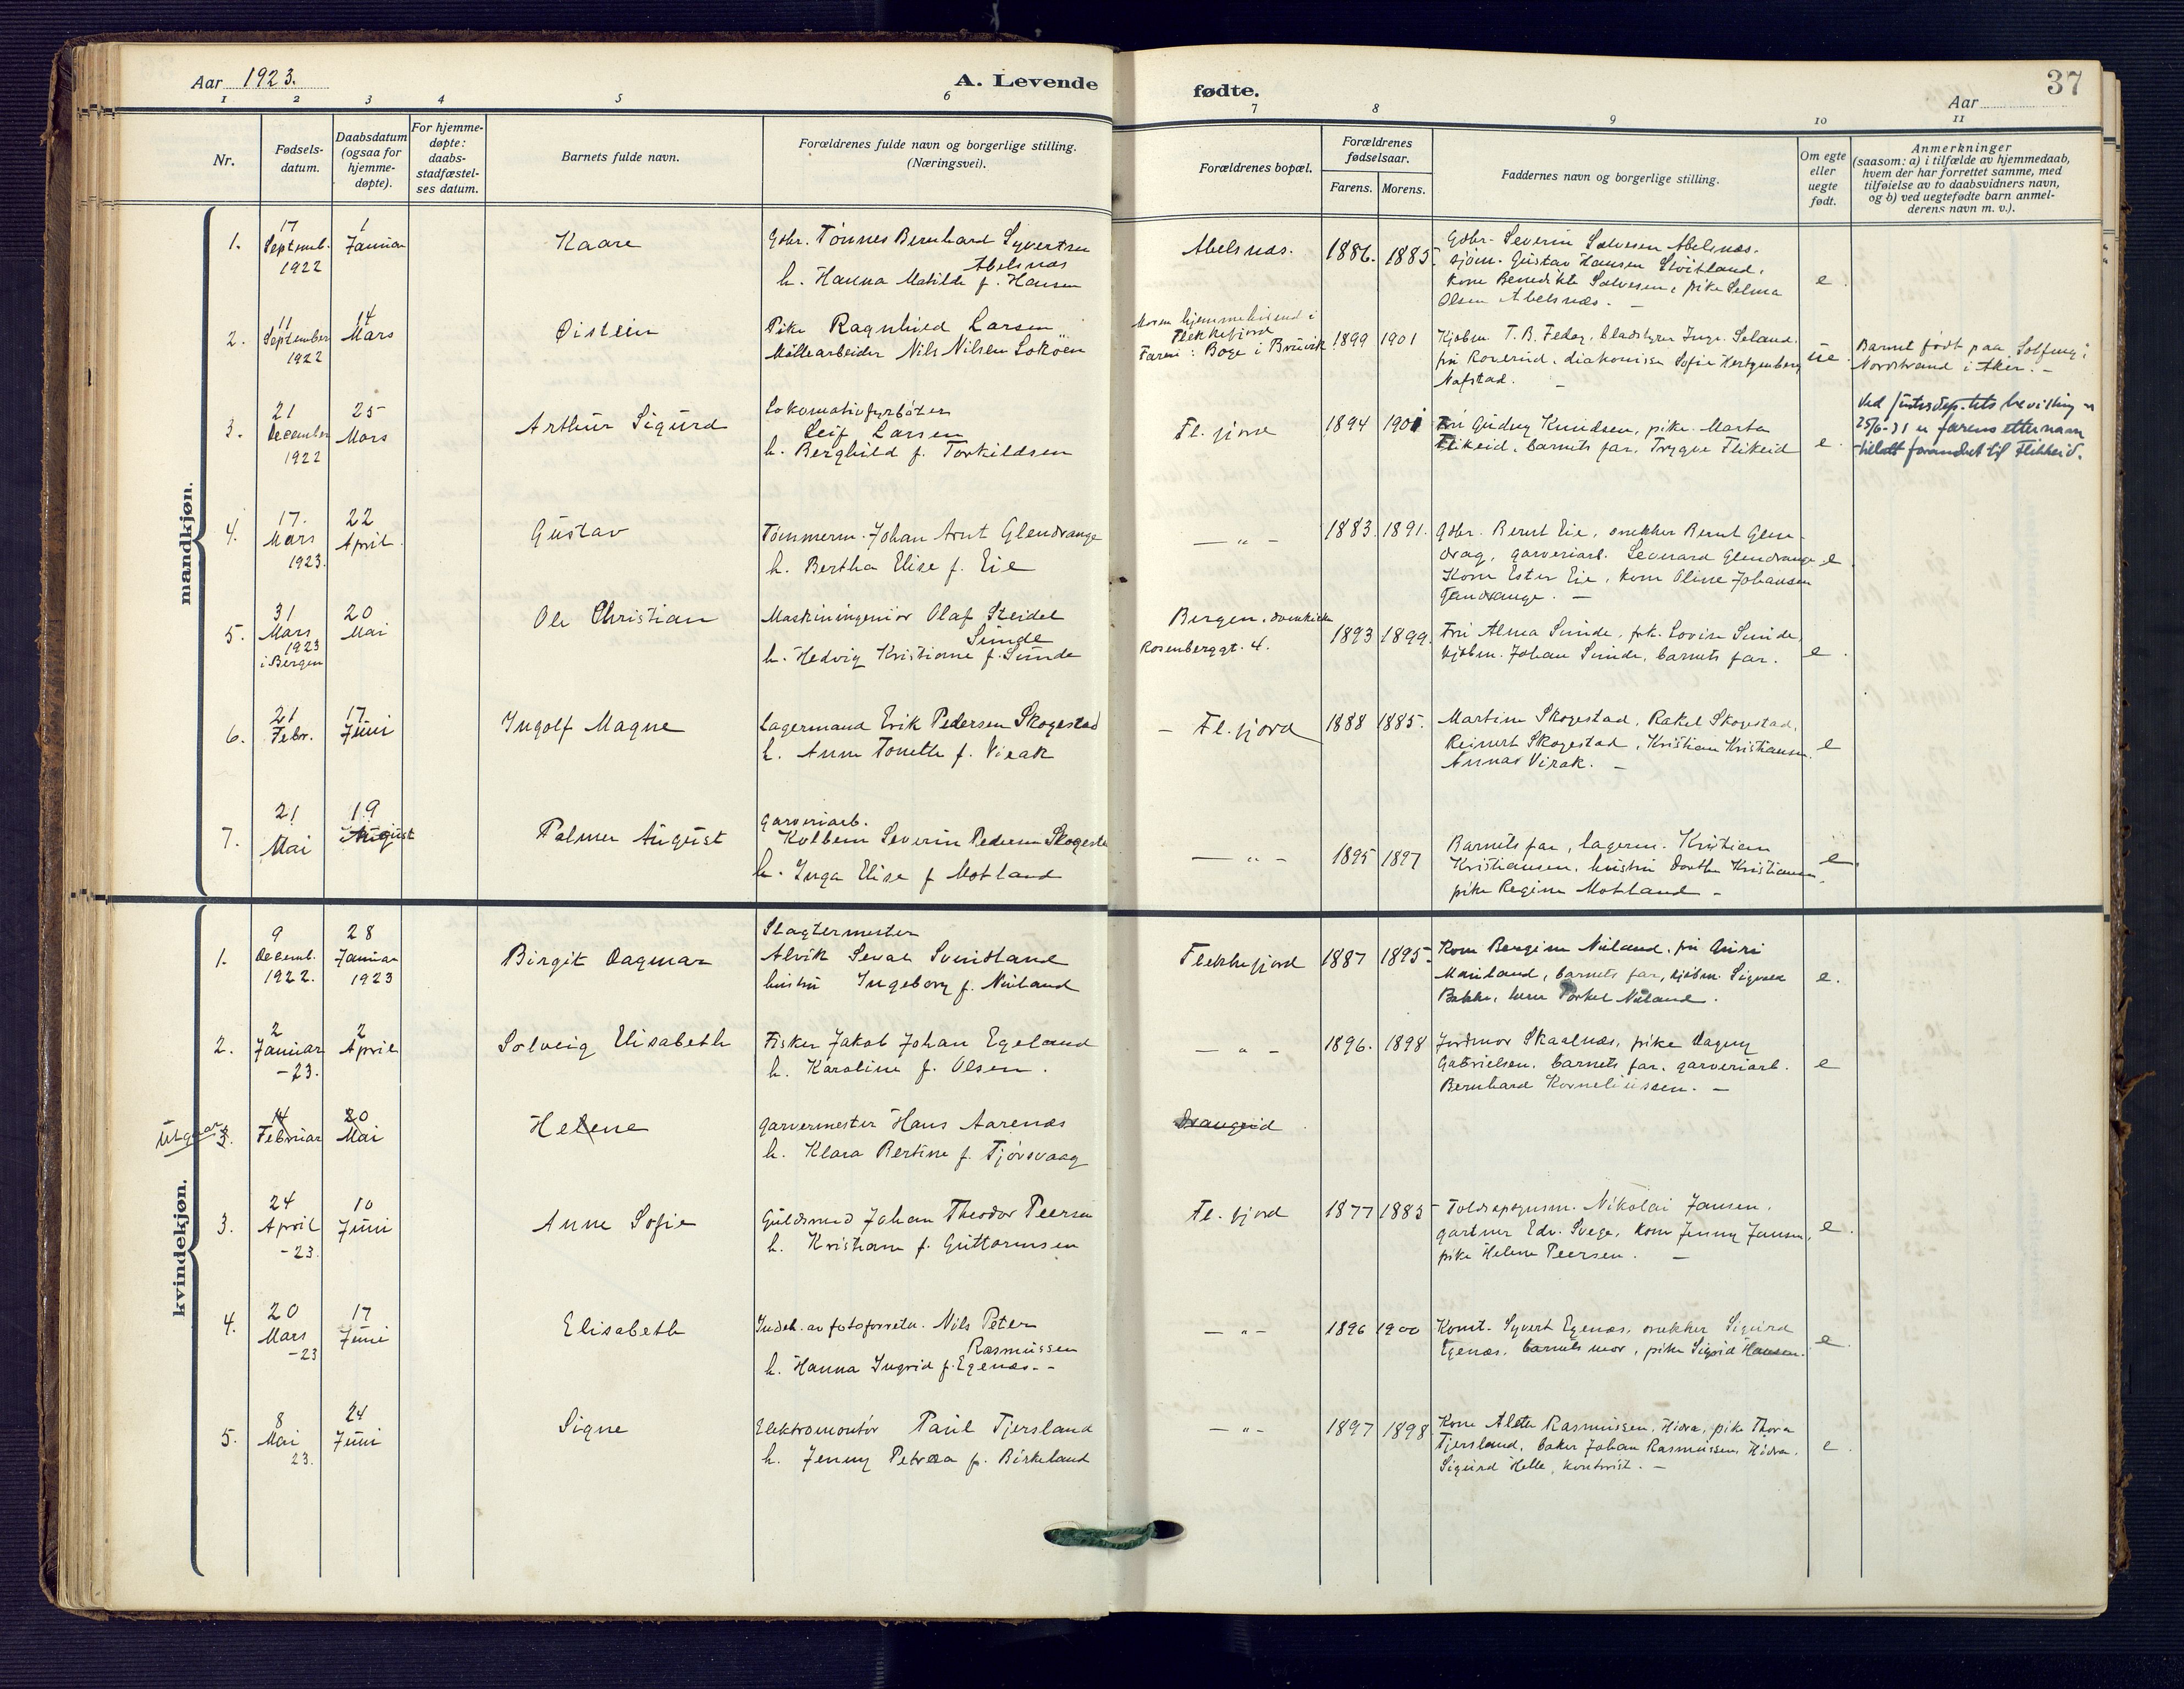 Aar 1923.
A. Levende
fødte.
37
Aar
1 2 3 4 5 6 7 8 9 10 11
Nr.
Fødsels-
datum.
Daabsdatum
(ogsaa for
hjemme-
døpte).
For hjemme-
døpte:
daabs-
stadfæstel-
ses datum.
Barnets fulde navn.
Forældrenes fulde navn og borgerlige stilling.
(Næringsvei).
Forældrenes bopæl.
Forældrenes
fødselsaar.
Farens. Morens.
Faddernes navn og borgerlige stilling.
Om egte
eller
uegte
født.
Anmerkninger
(saasom: a) i tilfælde av hjemmedaab,
hvem der har forrettet samme, med
tilføielse av to daabsvidners navn,
og b) ved uegtefødte barn anmel-
derens navn m. v.).
mandkjøn.
1.
17
Septemb.
1922
1
Januar
Kaare
Gbr. Tønnes Bernhard Syvertsen
Abelsnæs
h. Hanna Matilde f. Hansen
Abelsnæs.
1886. 1885.
Gbr. Severin Salvesen Abelsnæs.
sjøm. Gustav Hansen
Kone Benedikte Salvesen, pike Selma
Olsen Abelsnæs. -
e
2.
11
September
1922
14
Mars
Øistein
Pike Ragnhild Larsen
Møllearbeider Nils Nilsen Lokøen
Moren hjemmehørende i
Flekkefjord
Faren: Boge i Bruvik
1899 1901
Kjøbm. T. B. Fedog, bladstyrer Inge Seland.
fru Roverud, diakonisse Sofie Hertzenberg
Nafstad. -
ue.
Barnet født paa Solhaug i
Nordstrand i Aker. -
3.
21
December
1922
25
Mars
Arthur Sigurd
Lokomotivfyrbøter
Leif Larsen
h. Berghild f. Torkildsen
Fl. fjord
1894 1901
Fru Gudny Knudsen, pike Marta
Flikeid, barnets far, Trygve Flikeid
e.
Ved Justisdep.tets bevilling
25/6-31 er farens etternavn
tillatt forandret til Flikkeid.
4.
17.
Mars
1923.
22
April
Gustav
Tømmerm. Johan Arnt Glendrange
h. Bertha Elise f. Eie
— " -
1883. 1891.
Gbr. Bernt Eie, snekker Bernt Glen-
drag, garveriarb. Leonard Glendrange
Kone Ester Eie, kone Oline Johansen
. -
e
5.
31
Mars
1923
i Bergen
20
Mai
Ole Christian
Maskiningeniør Olaf Steidel
Sunde
h. Hedvig Kristiane f. Sunde
Bergen, domkirke
Rosenberggt. 4.
1893 1899.
Fru Alma Sunde, frk. Lovise Sunde,
kjøbm. Johan Sunde, barnets far.
e.
6.
21
Febr.
17
Juni
Ingolf Magne
Lagermand Erik Pedersen Skogestad
h. Anne Tonette f. Virak
- Fl. fjord
1888 1885.
Martine Skogestad, Rakel Skogestad,
Reinert Skogestad, Kristian Kristiansen,
Annas Virak. -
e
7.
21
Mai
19
August
Palmer August
Garveriarb.
Kolbein Severin Pedersen Skogesta
h. Inga Elise f Motland
— " -
1895 1897
Barnets far, lagerm. Kristian
Kristiansen, hustru Dorthe Kristiansen,
pike Regine Motland -
e.
kvindekjøn.
1.
9
Decemb.
1922.
28
Januar
1923
Birgit Dagmar
Slagtermester
Alvik Sevat Svindland
hustru Ingeborg f. Nuland
Flekkefjord
1887 1895
Kone Bergine Nuland, fru Guri
Mauland, barnets far, kjøbm. Sigvald
Bakke, Torkel Nuland.
e.
2.
2
Januar
-23.
2
April
Solveig Elisabeth
Fisker Jakob Johan Egeland
h. Karoline f. Olsen.
— " -
1896. 1898
Jordmor Skaalnæs, pike Dagny
Gabrielsen, barnets far, garveriarb.
Bernhard Korneliussen. -
e
Utgaar
3.
14
Februar
20
Mai
Helene
Garvermester Hans Aarenæs
h. Klara Bertine f. Tjørsvaag
Drangeid
3.
24
April
-23.
10
Juni
Anne Sofie
Guldsmed Johan Theodor Peersen
h. Kristiane f. Guttormsen
Fl. fjord
1877 1885
Toldopsynsm. Nikolai Jansen,
gartner Edv. Svege, kone Jenny Jansen,
pike Helene Peersen. -
e.
4.
20
Mars
-23
17
Juni
Elisabeth
Indeh. av fotoforretn. Nils Peter
Rasmussen
h. Hanna Ingrid f. Egenæs. -
— " -
1896 1900
Komt. Syvert Egenæs, snekker Sigurd
Egenæs, barnets mor, pike Sigrid Hansen.
e.
5.
8
Mai
23.
24
Juni
Signe
Elektromontør Paul Tjersland
h. Jenny Petrea f. Birkeland
— " -
1897 1898
Kone Alette Rasmussen, Hidra, pike Thora
Tjersland, baker Johan Rasmussen, Hidra,
Sigurd Helle, kontorist. -
e.